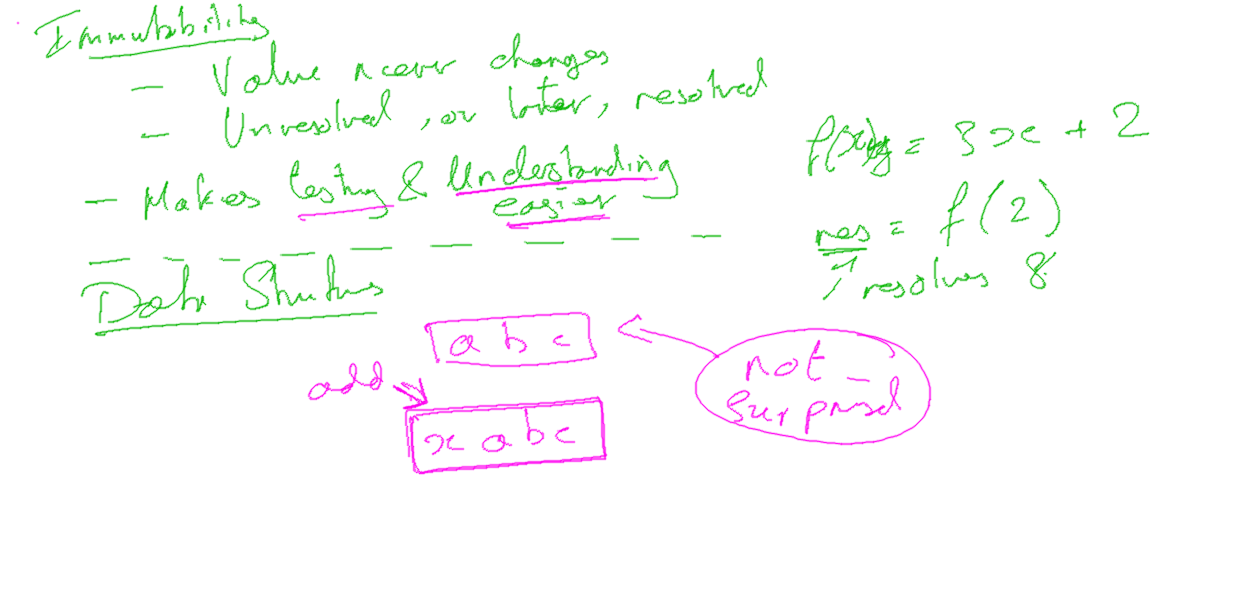 Immutability
– Value never changes
– Unresolved, or later, resolved
– Makes testing & Understanding
easier
f(x) = 3x + 2
res = f(2)
resolves 8
Data Structures
a b c
add
x a b c
not
surprised